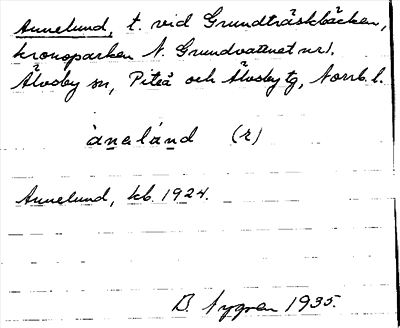 Annelund, t. vid Grundträskbäcken,
kronoparken N. Grundvattnet nr 1.
Älvsby sn, Piteå och Älvsby tg, Norrb. l.
ànelánd (r)
Annelund, kb. 1924.
B. Nygren 1935.